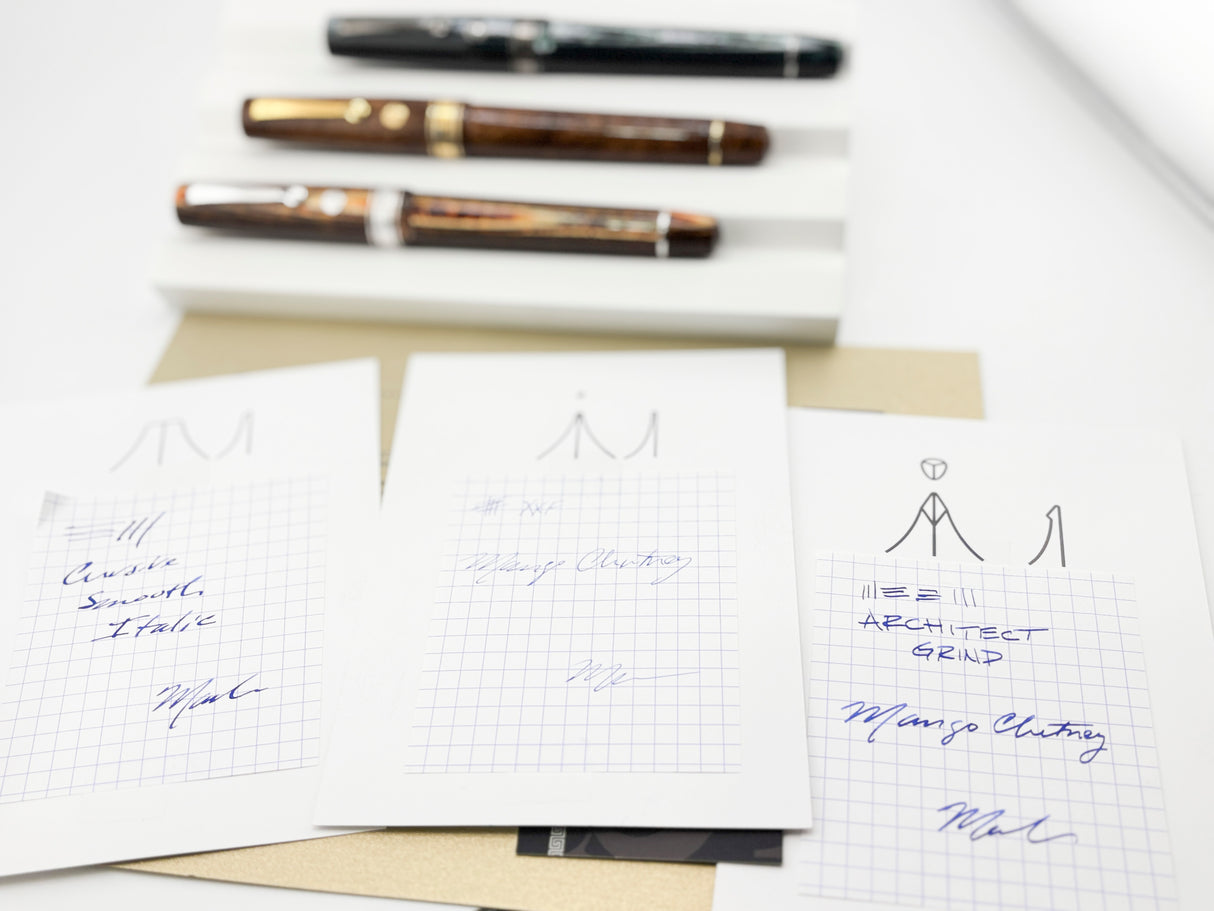 Cursive
Smooth
Italic
XXF
Mango Chutney
ARCHITECT
GRIND
Mango Chutney